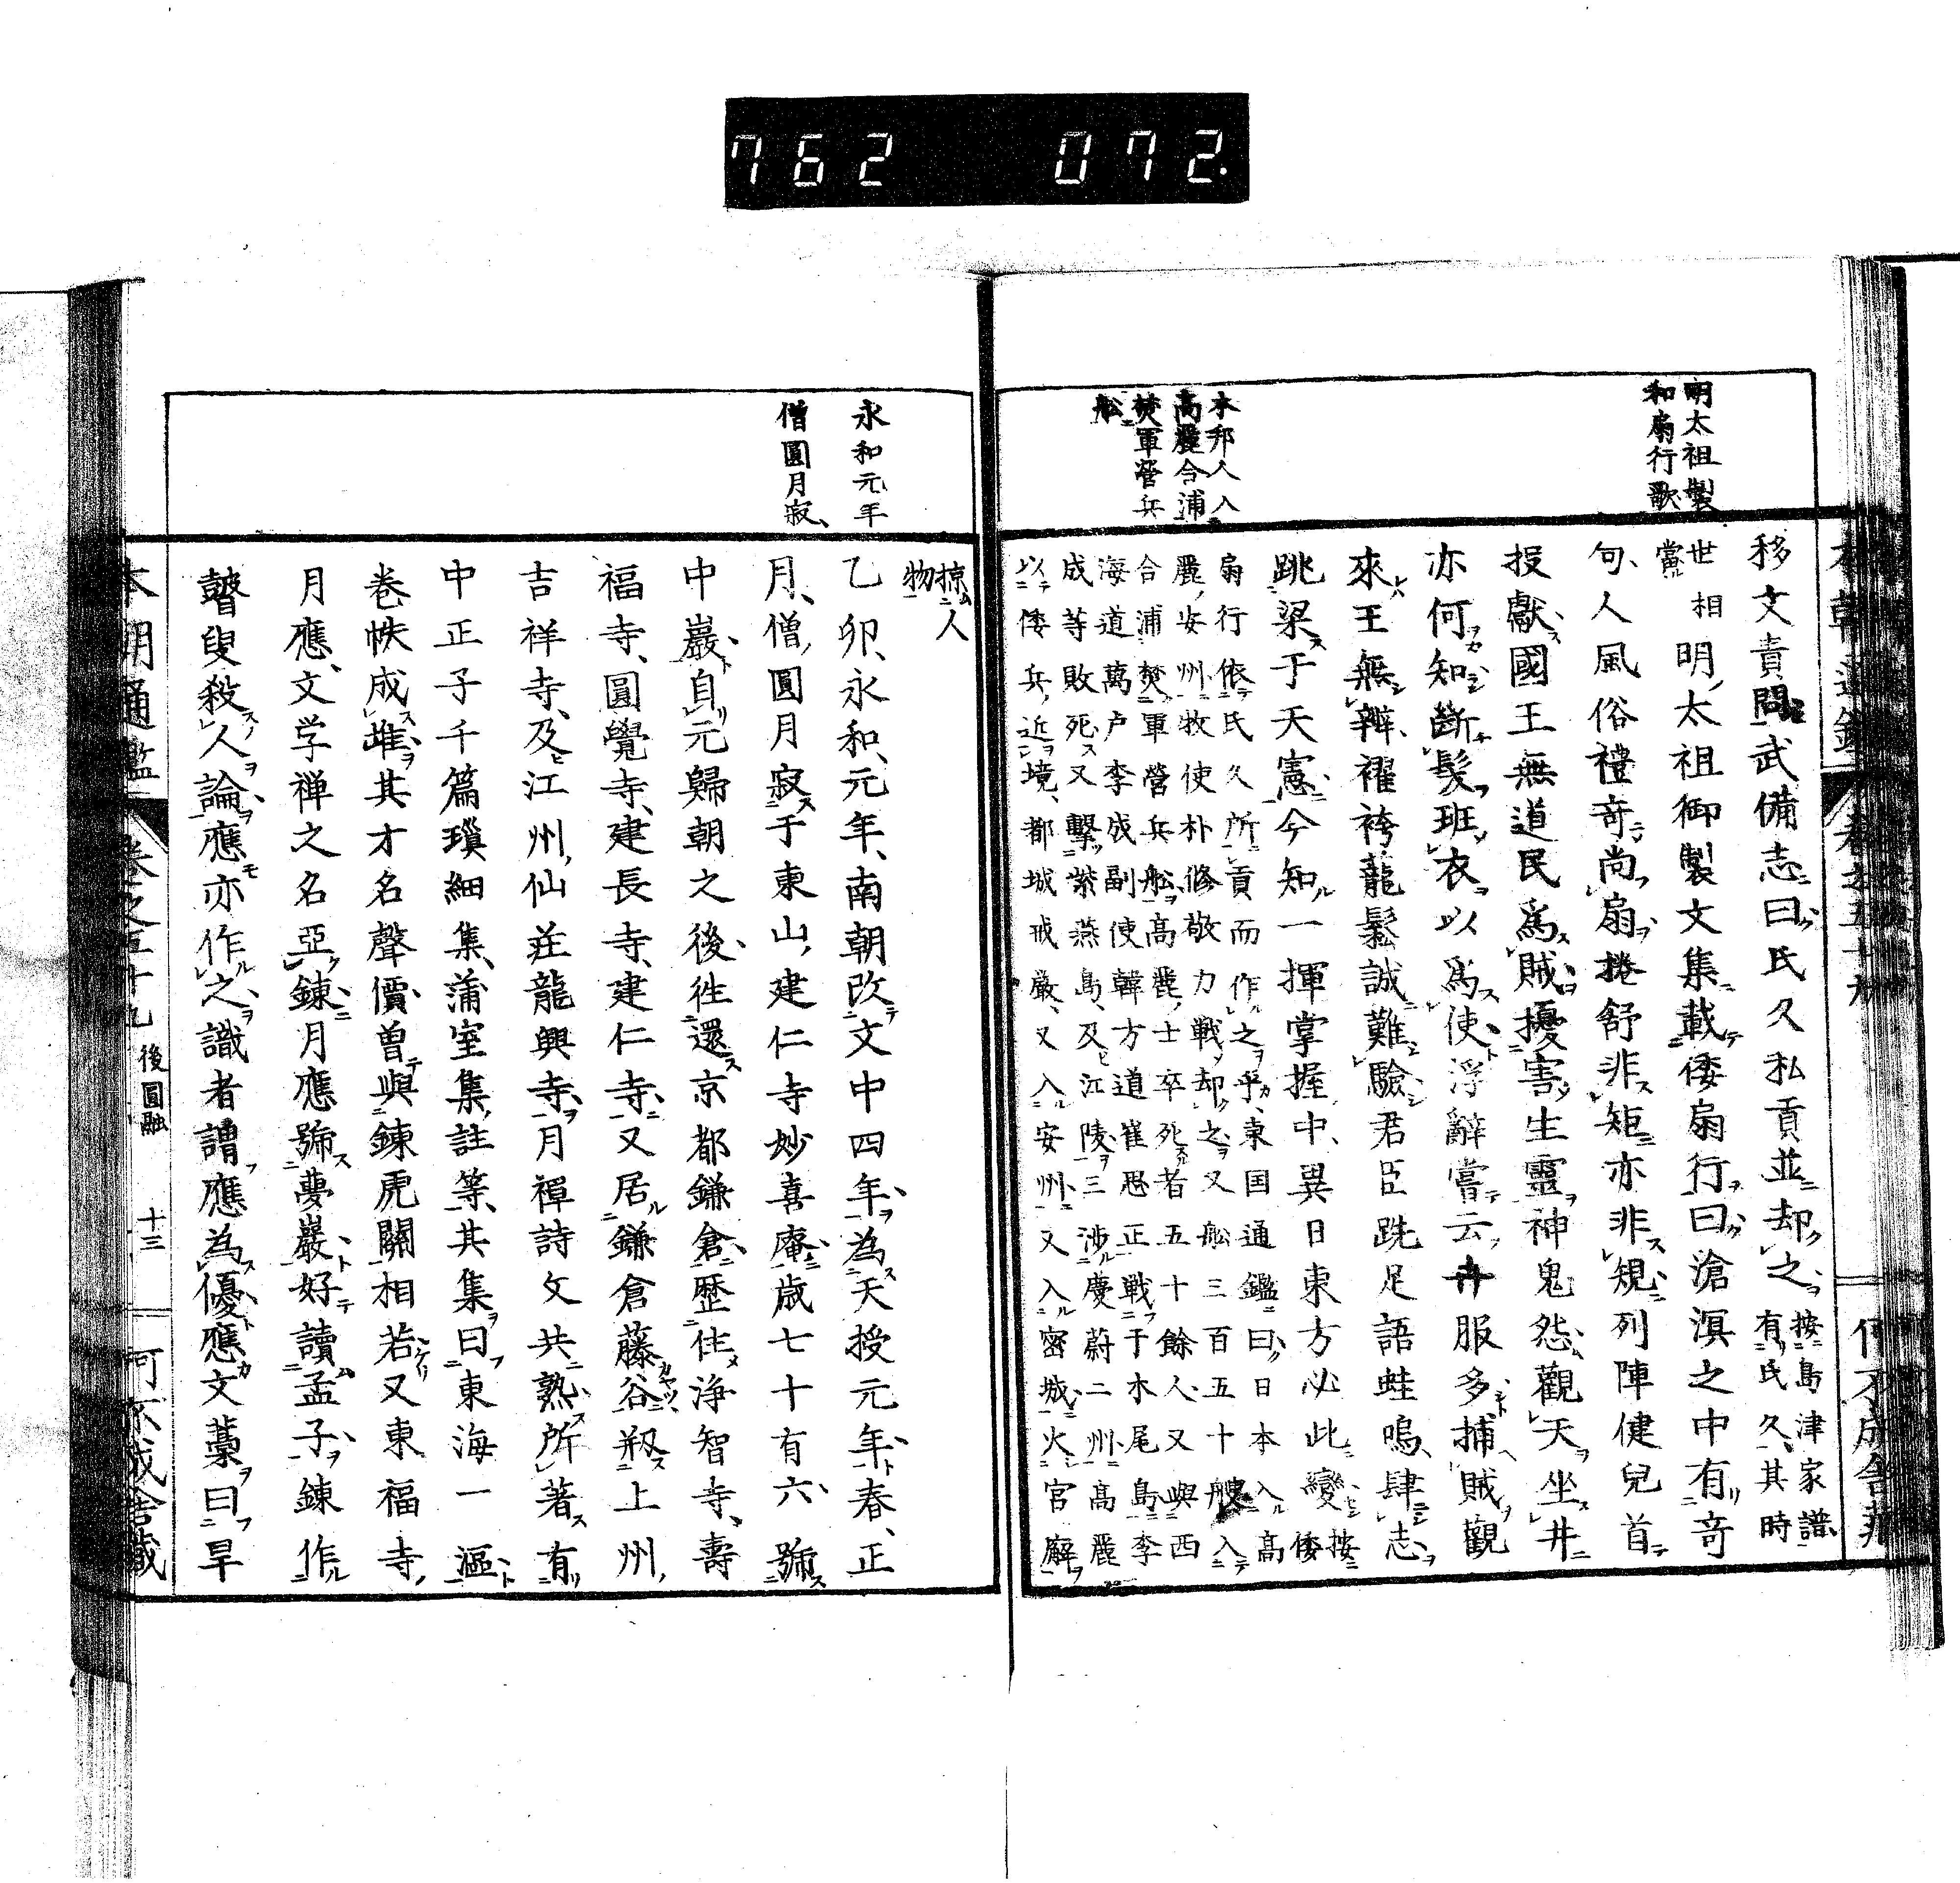 762 072.
明太祖製
和扇行歌
本邦人入
高麗合浦
焚軍營兵
船
移文責問武備志曰氏久私貢並却之
按島津家譜
有氏久其時
世相
當
明太祖御製文集載倭扇行曰滄溟之中有奇
句人風俗禮奇尚扇捲舒非矩亦非規列陣健兒首
投獻國王無道民爲賊擾害生靈神鬼怨觀天坐井
亦何知斷髮班衣以爲使浮辭嘗云卉服多捕賊觀
來王無辨襬袴籠鬆誠難驗君臣跣足語蛙鳴肆志
跳梁于天憲今知一揮掌握中異日東方必此變
按
倭
扇行依氏久所貢而作之乎東国通鑑曰日本入高
麗安州牧使朴修敬力戰却之又船三百五十艘入
合浦焚軍營兵船高麗士卒死者五十餘人又與西
海道萬户李成副使韓方道崔思正戰于木尾島李
成等敗死又擊紫燕島及江陵三渉慶蔚二州高麗
以倭兵近境都城戒嚴又入安州又入密城火官廨
掠人
物
永和元年
僧圓月寂
乙卯永和元年南朝改文中四年為天授元年春正
月僧圓月寂于東山建仁寺妙喜庵歳七十有六號
中巖自元歸朝之後徃還京都鎌倉歴住浄智寺壽
福寺圓覺寺建長寺建仁寺又居鎌倉藤谷剏上州
吉祥寺及江州仙莊龍興寺月禪詩文共熟所著有
中正子千篇瑣細集蒲室集註等其集曰東海一漚
卷帙成雌其才名聲價曽與錬虎關相若又東福寺
月應文学禅之名亞錬月應號夢巖好讀孟子錬作
瞽叟殺人論應亦作之識者謂應為優應文藁曰旱
本朝通鑑 卷之五十九 後圓融 十三